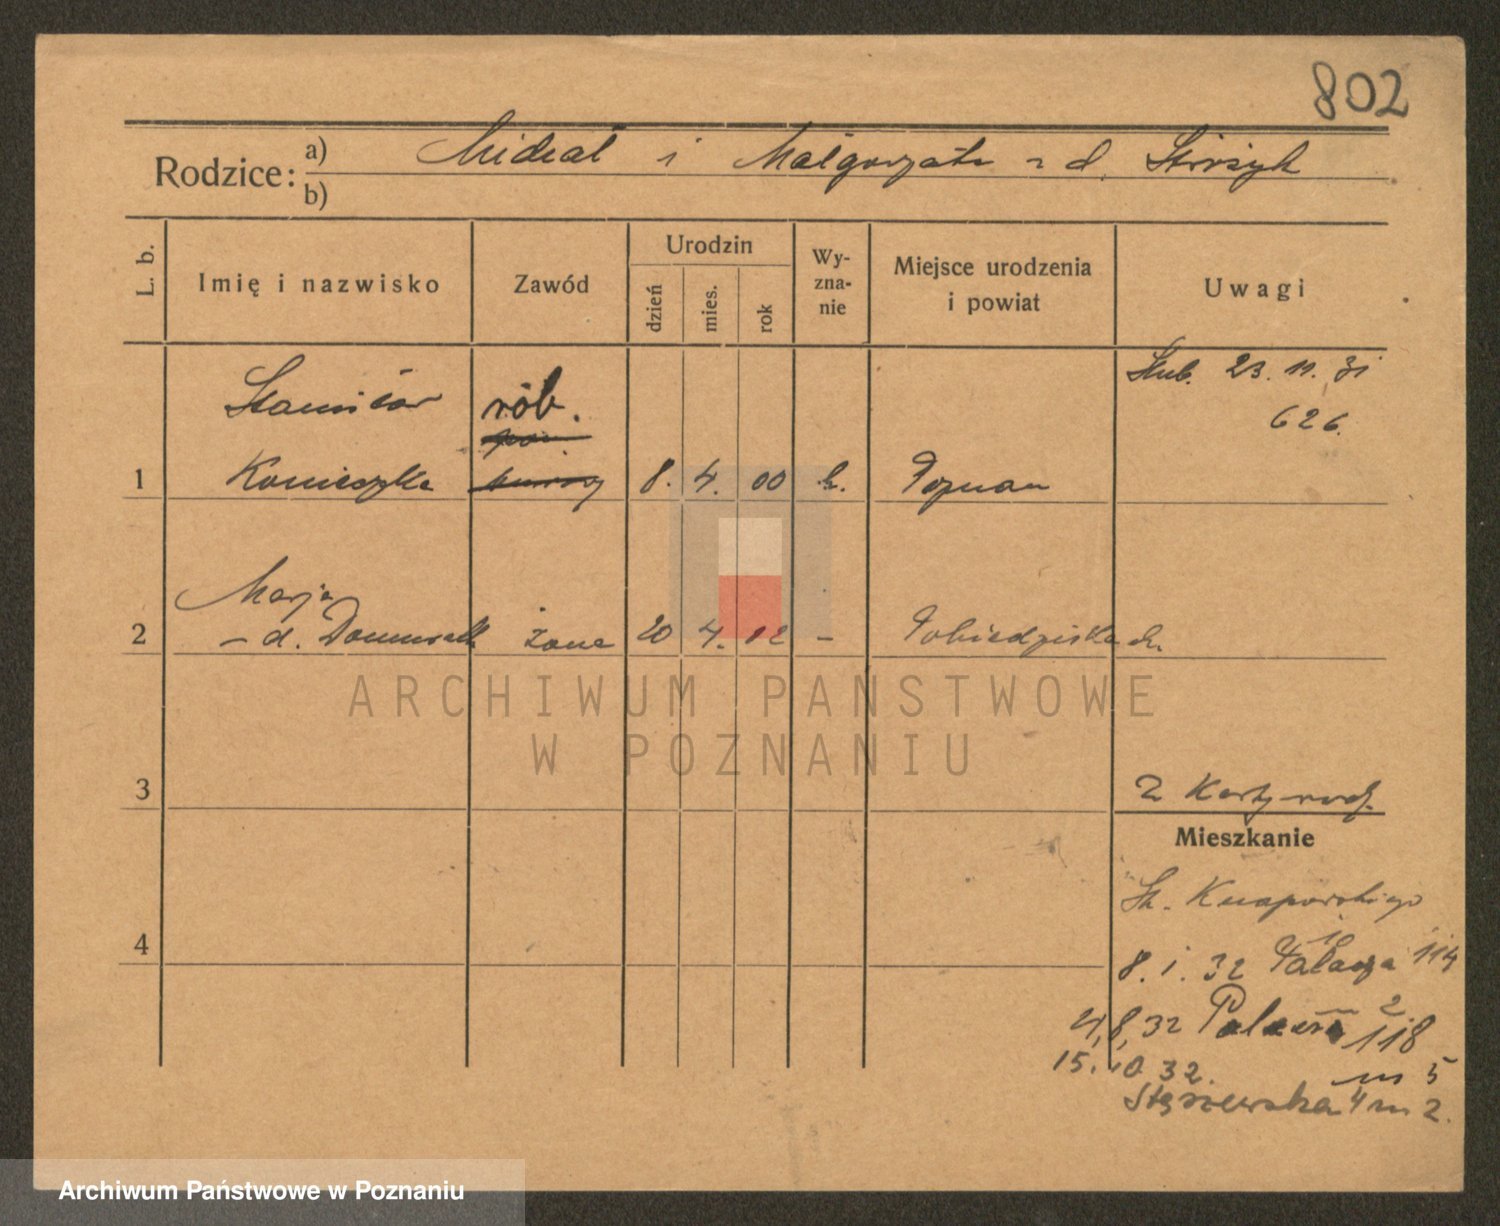 802
Rodzice: a) Michał i Małgorzata z d. Stróżyk
b)
L. b. Imię i nazwisko Zawód Urodzin dzień mies. rok Wy-zna-nie Miejsce urodzenia i powiat Uwagi
Ślub. 23. 11. 31
626.
Stanisław rob.
1 Konieczka 8. 4. 00 k. Poznan
Marja
2 z d. żona 20 4. 02 - Pobiedziska
ARCHIWUM PAŃSTWOWE
W POZNANIU
3 Z Karty rodz.
Mieszkanie
Knapowskiego
4
8. 1. 32 Palacza 114
4,8,32 118
15. 10. 32. m 5
Stęszewska 4 m 2.
Archiwum Państwowe w Poznaniu